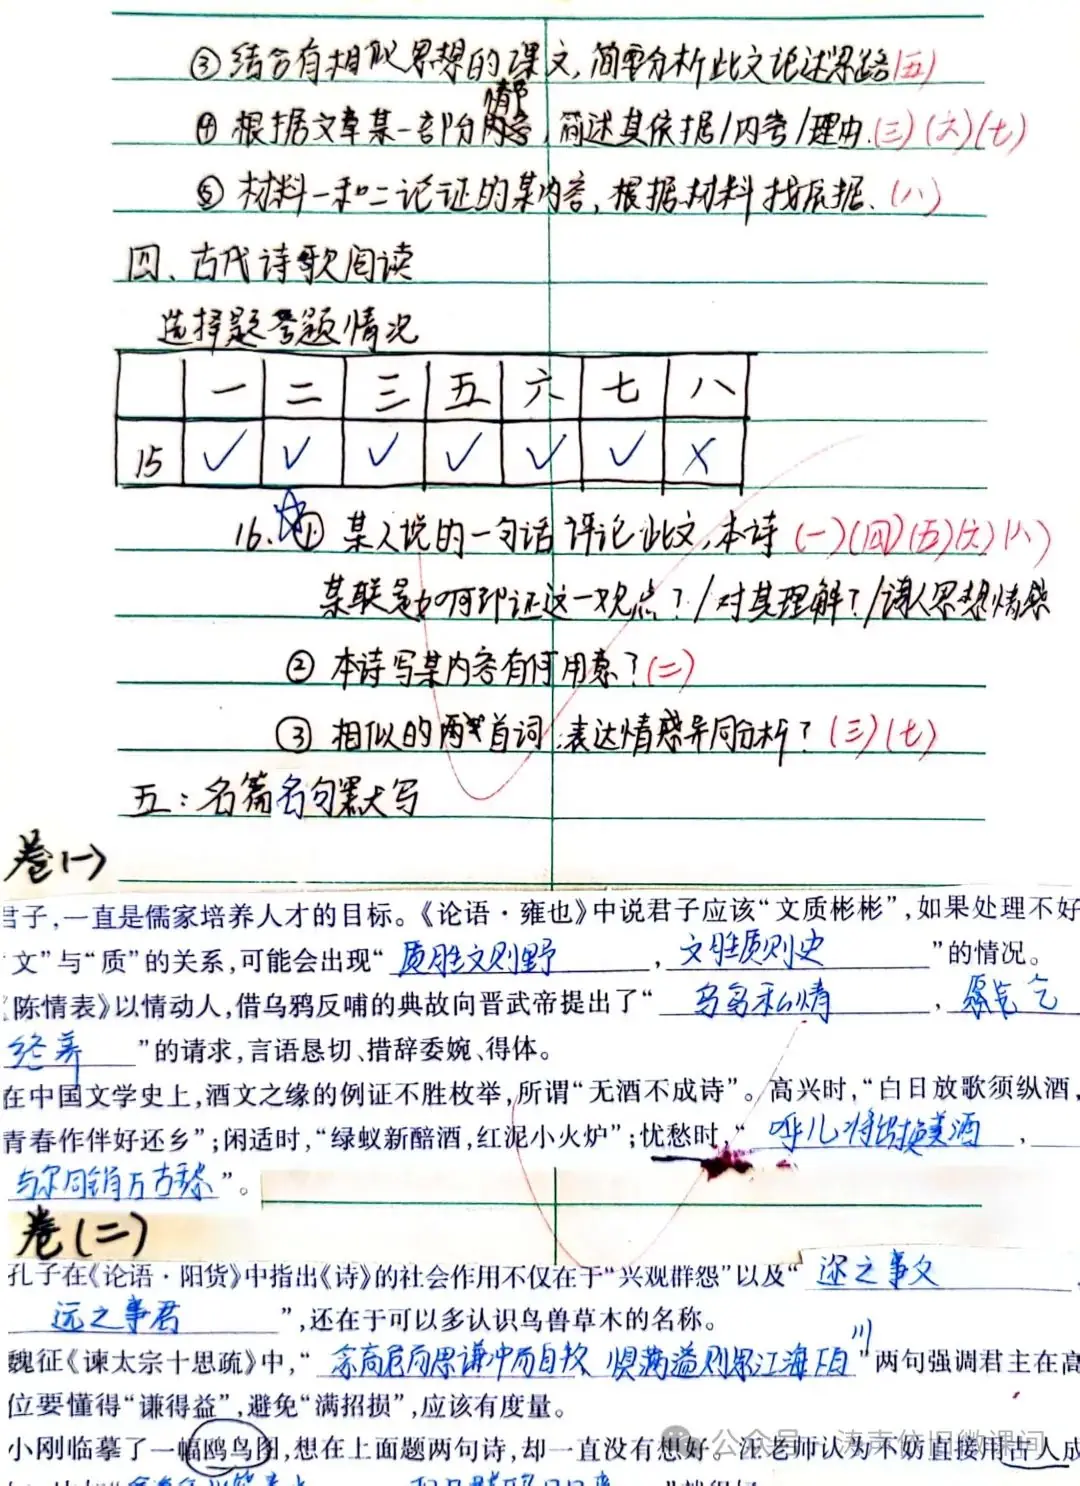 ③ 结合有相似思想的课文,简要分析此文论述思路(五)
④ 根据文章某一部分内容,简述其依据/内容/理由.(三)(六)(七)
⑤ 材料一和二论证的某内容,根据材料找依据.(八)
四、古代诗歌阅读
选择题答题情况
一 二 三 五 六 七 八
15 ✓ ✓ ✓ ✓ ✓ ✓ ✗
16. ① 某人说的一句话评论此文,本诗 (一)(四)(五)(六)(八)
某联是如何印证这一观点?/对其理解?/诗人思想情感
② 本诗写某内容有何用意?(二)
③ 相似的两首词,表达情感异同分析?(三)(七)
五:名篇名句默写
卷(一)
君子,一直是儒家培养人才的目标。《论语·雍也》中说君子应该“文质彬彬”,如果处理不好
“文”与“质”的关系,可能会出现“质胜文则野,文胜质则史”的情况。
《陈情表》以情动人,借乌鸦反哺的典故向晋武帝提出了“乌鸟私情,愿乞
终养”的请求,言语恳切、措辞委婉、得体。
在中国文学史上,酒文之缘的例证不胜枚举,所谓“无酒不成诗”。高兴时,“白日放歌须纵酒,
青春作伴好还乡”;闲适时,“绿蚁新醅酒,红泥小火炉”;忧愁时,“呼儿将出换美酒,
与尔同销万古愁”。
卷(二)
孔子在《论语·阳货》中指出《诗》的社会作用不仅在于“兴观群怨”以及“迩之事父,
远之事君”,还在于可以多认识鸟兽草木的名称。
魏征《谏太宗十思疏》中,“念高危则思谦冲而自牧 惧满溢则思江海下百川”两句强调君主在高
位要懂得“谦得益”,避免“满招损”,应该有度量。
小刚临摹了一幅鸥鸟图,想在上面题两句诗,却一直没有想好。汪老师认为不妨直接用古人成
公众号·涛声依旧微课间